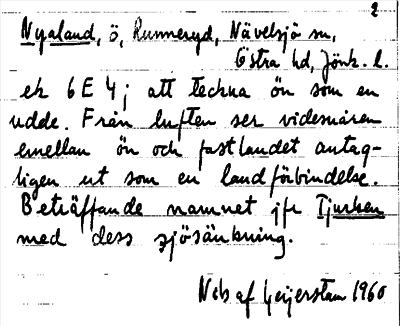 2
Nyaland, ö, Runneryd, Nävelsjö sn,
Östra hd, Jönk. l.
ek 6E4; att teckna ön som en
udde. Från luften ser videsnåren
emellan ön och fastlandet antag-
ligen ut som en landförbindelse.
Beträffande namnet jfr Tjurken
med dess sjösänkning.
Nils af Geijerstam 1960